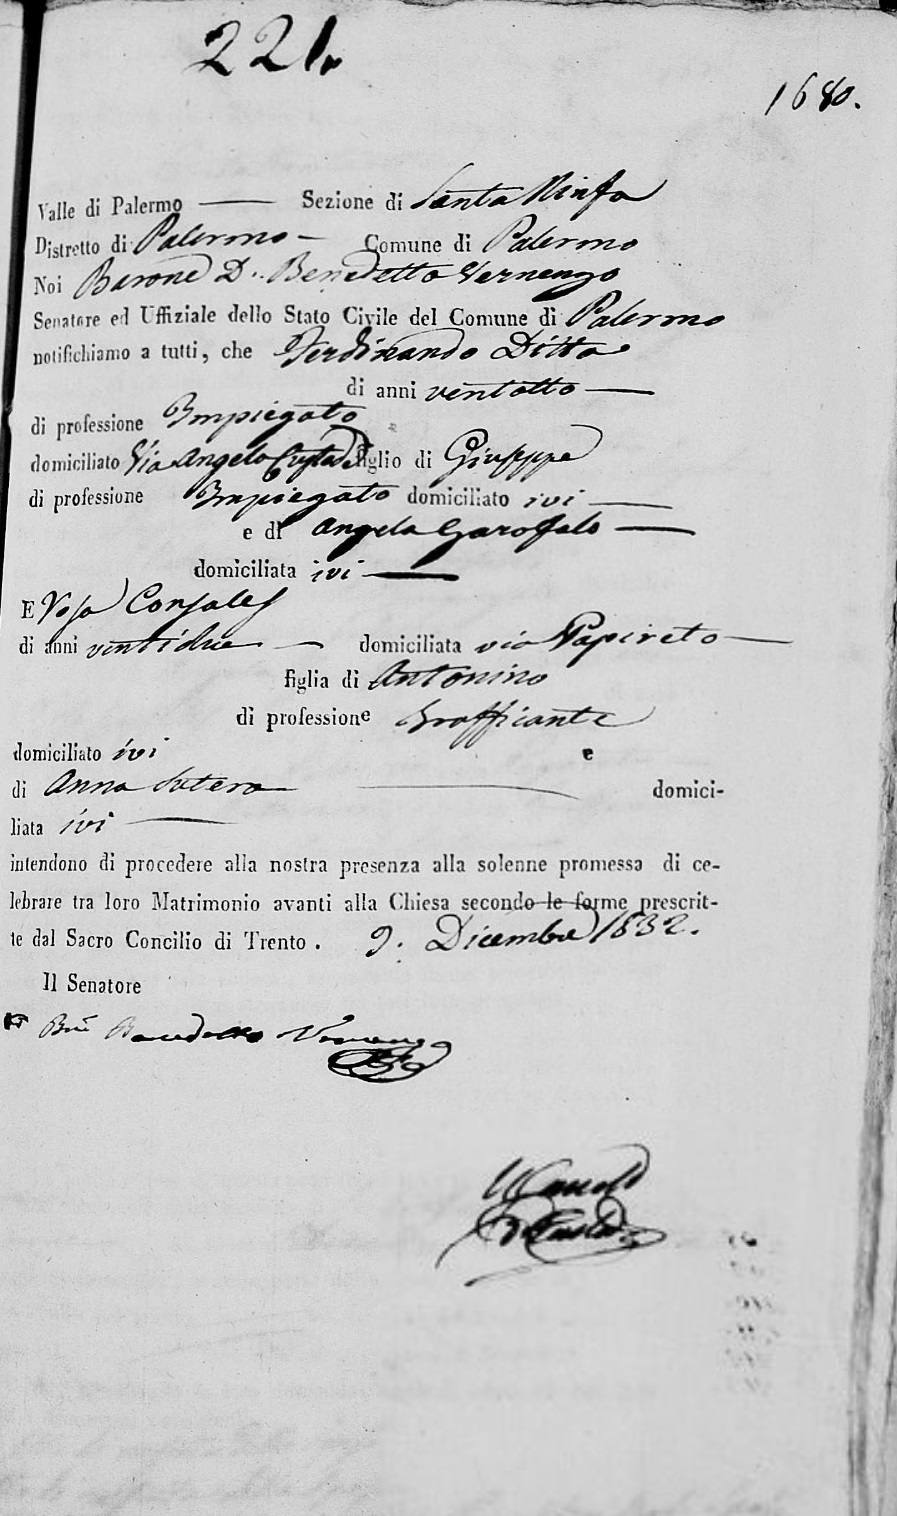 221.
1680.
Valle di Palermo — Sezione di Santa Ninfa
Distretto di Palermo — Comune di Palermo
Noi Barone D. Benedetto Vernengo
Senatore ed Uffiziale dello Stato Civile del Comune di Palermo
notifichiamo a tutti, che Ferdinando Ditta
di anni ventotto —
di professione Impiegato
domiciliato Via Angelo Custode figlio di Giuseppe
di professione Impiegato domiciliato ivi —
e di Angela Garofalo —
domiciliata ivi —
E Rosa Consales
di anni ventidue — domiciliata via Papireto —
figlia di Antonino
di professione Trafficante
domiciliato ivi e
di Anna Sutera — domici-
liata ivi —
intendono di procedere alla nostra presenza alla solenne promessa di ce-
lebrare tra loro Matrimonio avanti alla Chiesa secondo le forme prescrit-
te dal Sacro Concilio di Trento. 9. Dicembre 1832.
Il Senatore
Bne Benedetto Vernengo